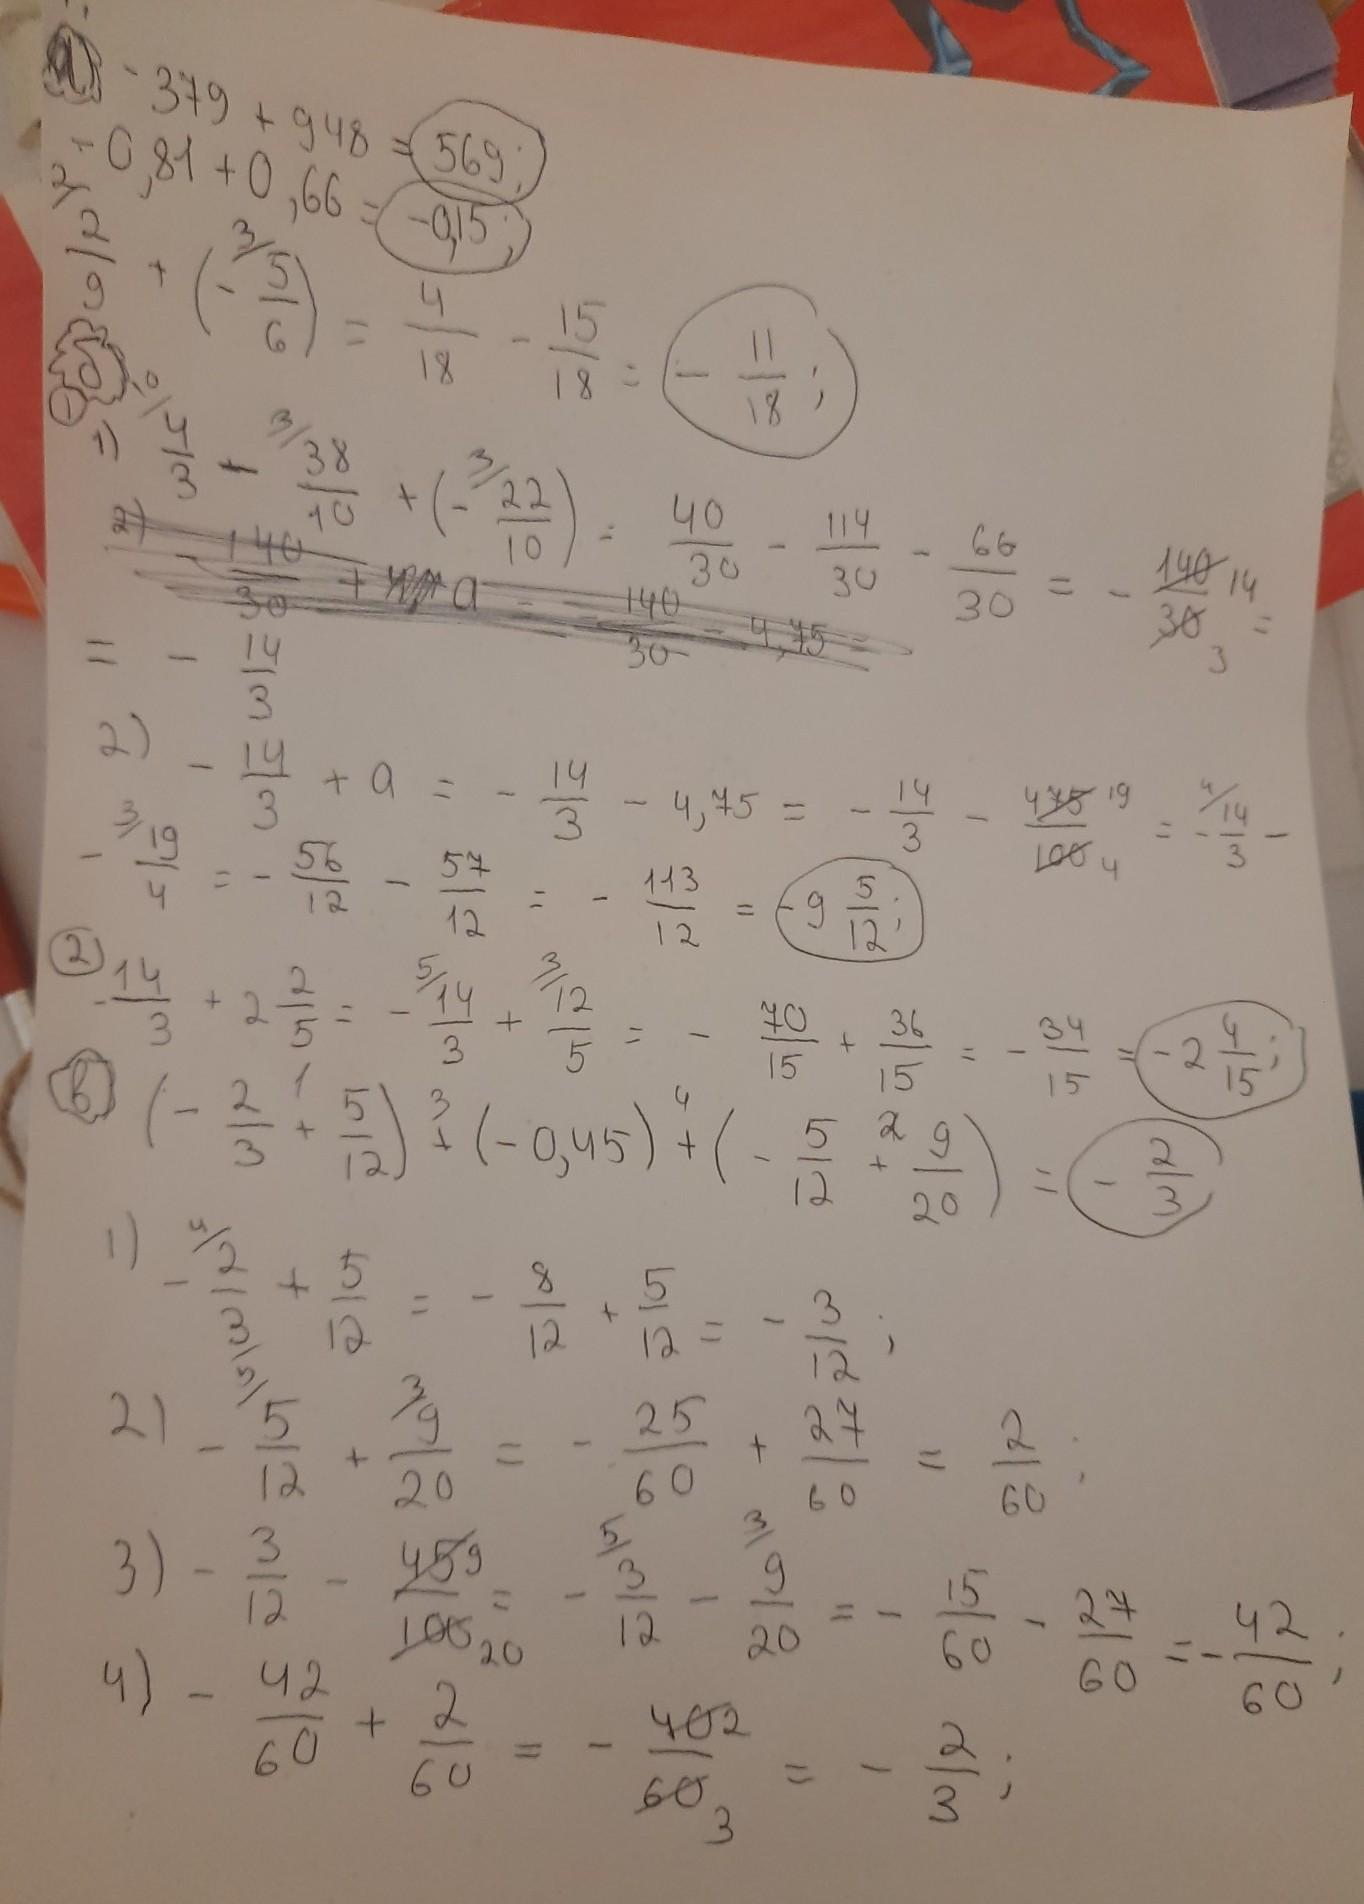 а) - 379 + 948 = 569;
- 0,81 + 0,66 = -0,15;
2/ 2/9 + (- 3/ 5/6) = 4/18 - 15/18 = - 11/18;
б)
① 1) 10/ 4/3 - 3/ 38/10 + (- 3/ 22/10) = 40/30 - 114/30 - 66/30 = - 140/30 14/3 =
2) - 140/30 + a = - 140/30 - 4,75 =
= - 14/3
2) - 14/3 + a = - 14/3 - 4,75 = - 14/3 - 475/100 19/4 = - 4/ 14/3 -
- 3/ 19/4 = - 56/12 - 57/12 = - 113/12 = -9 5/12;
② - 14/3 + 2 2/5 = - 5/ 14/3 + 3/ 12/5 = - 70/15 + 36/15 = - 34/15 = -2 4/15;
в) (- 2/3 +¹ 5/12) +³ (-0,45) +⁴ (- 5/12 +² 9/20) = - 2/3
1) - 4/ 2/3 + 5/12 = - 8/12 + 5/12 = - 3/12;
2) - 5/ 5/12 + 3/ 9/20 = - 25/60 + 27/60 = 2/60;
3) - 3/12 - 45/100 9/20 = - 5/ 3/12 - 3/ 9/20 = - 15/60 - 27/60 = - 42/60;
4) - 42/60 + 2/60 = - 40/60 2/3 = - 2/3;